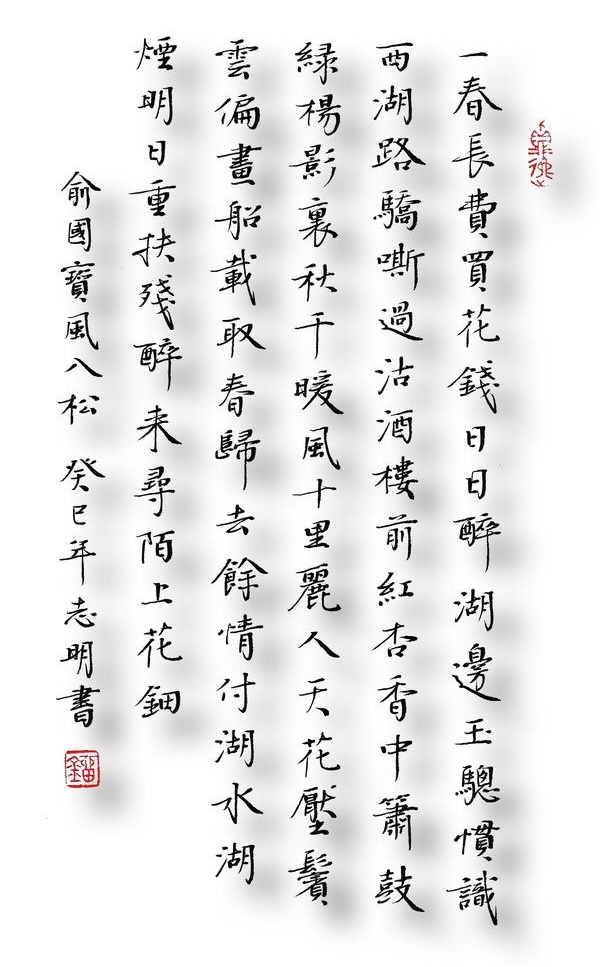 一春長費買花錢日日醉湖邊玉驄慣識
西湖路驕嘶過沽酒樓前紅杏香中簫鼓
緑楊影裏秋千暖風十里麗人天花壓鬢
雲偏畫船載取春歸去餘情付湖水湖
煙明日重扶殘醉来尋陌上花鈿
俞國寶風入松 癸巳年志明書